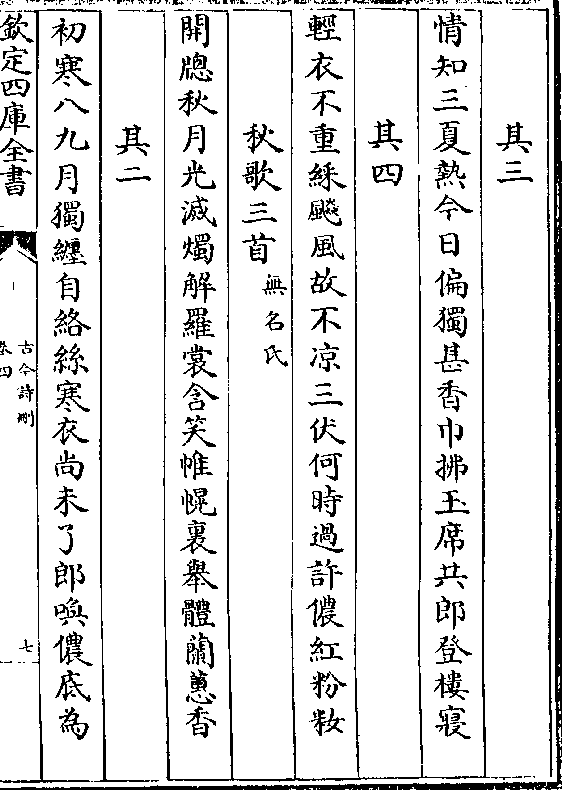 其三
情知三夏熱今日偏獨甚香巾拂玉席共郎登樓寢
其四
輕衣不重綵飈風故不凉三伏何時過許儂紅粉妝
秋歌三首 無名氏
開牕秋月光滅燭解羅裳含笑帷幌裏舉體蘭蕙香
其二
初寒八九月獨纏自絡絲寒衣尚未了郎喚儂底為
欽定四庫全書
古今詩刪
卷四
七